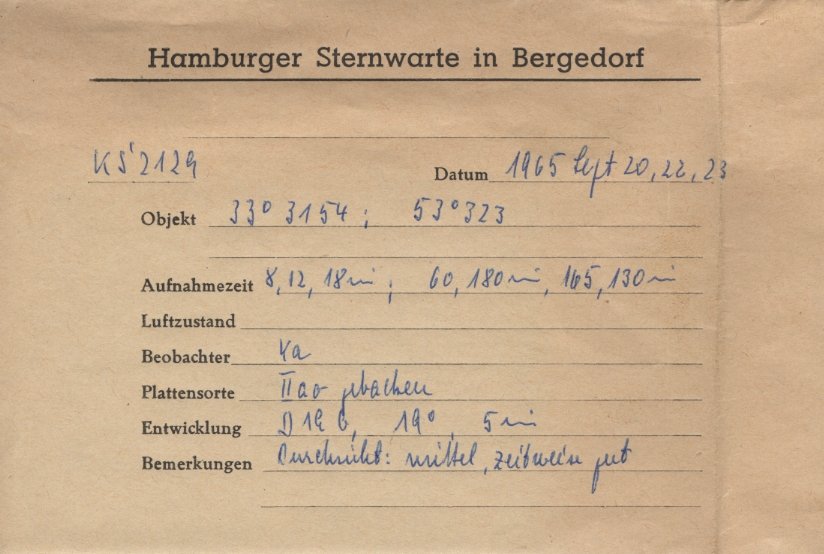 Hamburger Sternwarte in Bergedorf
KS 2129
Datum 1965 Sept 20, 22, 23
Objekt 33° 3154 ; 53° 323
Aufnahmezeit 8, 12, 18 min ; 60, 180 min, 165, 130 min
Luftzustand
Beobachter Ka
Plattensorte IIaO gebacken
Entwicklung D19b, 19°, 5 min
Bemerkungen Durchsicht: mittel, zeitweise gut